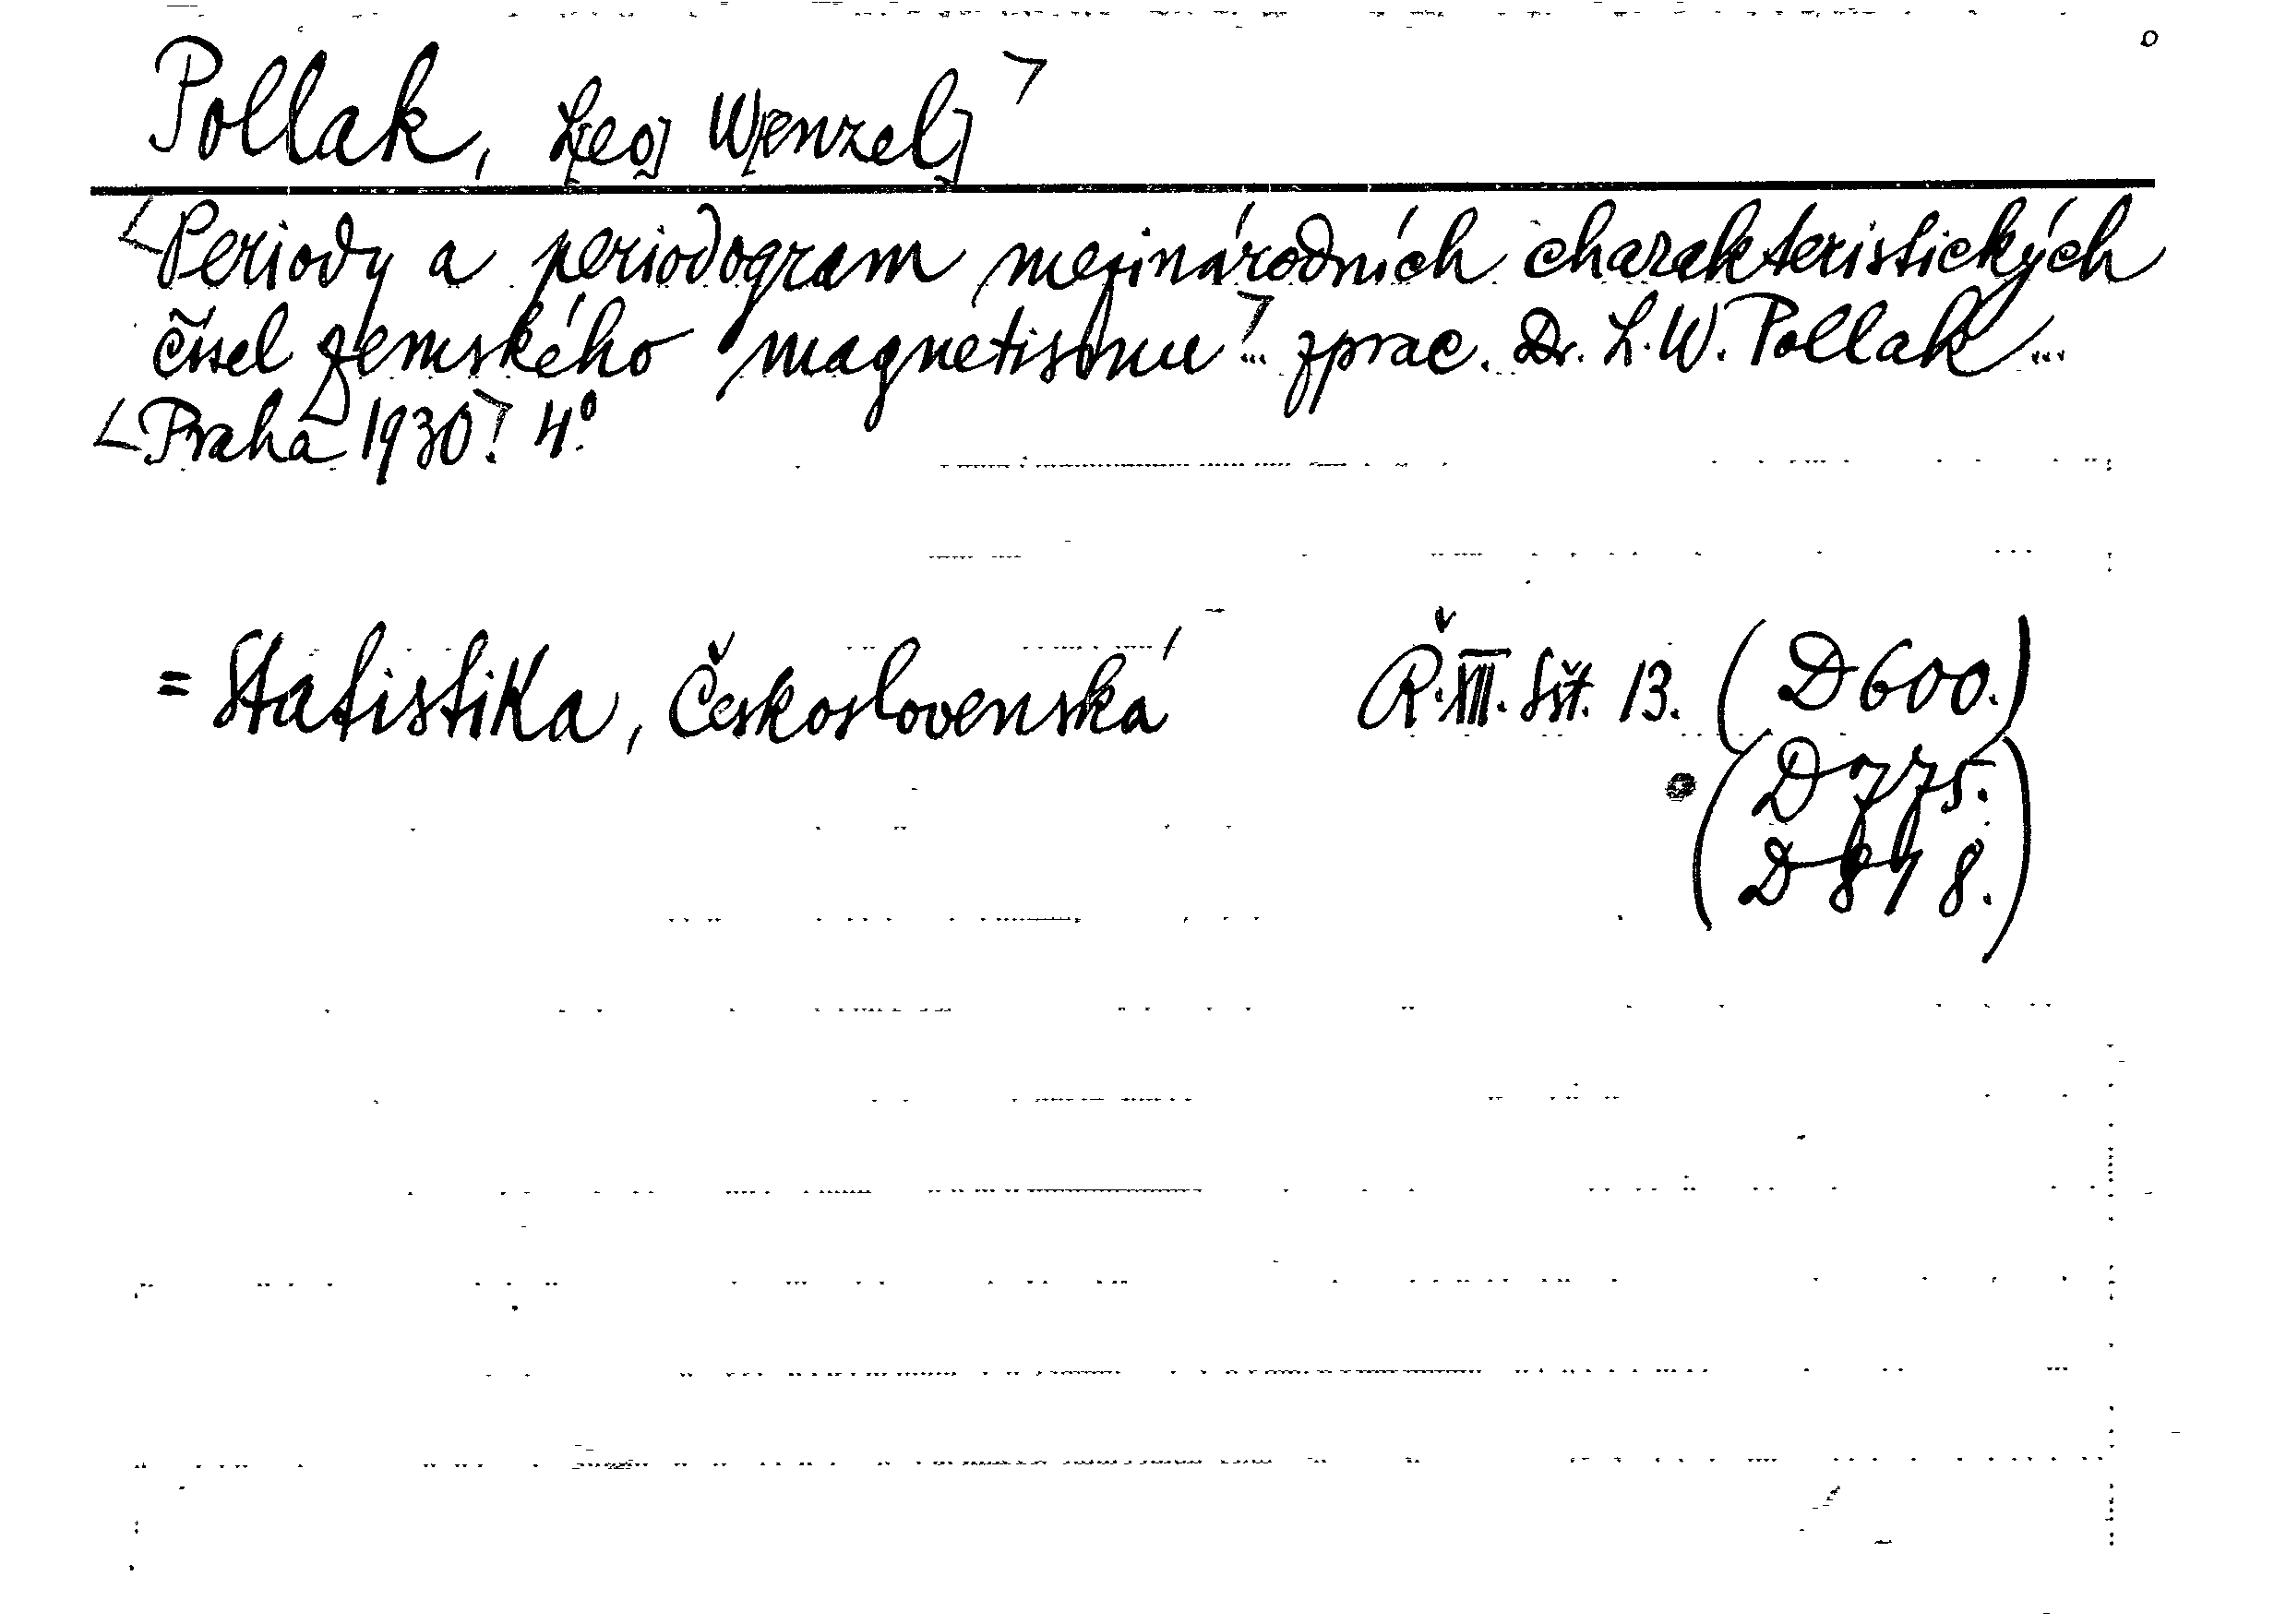 Pollak, L[eo] W[enzel]
Periody a periodogram mezinárodních charakteristických
čísel zemského magnetismu... zprac. Dr. L. W. Pollak...
Praha 1930. 4°
= Statistika, Československá Ř. XIII. Seš. 13. (D 600.)
(D 775.
D 818.)